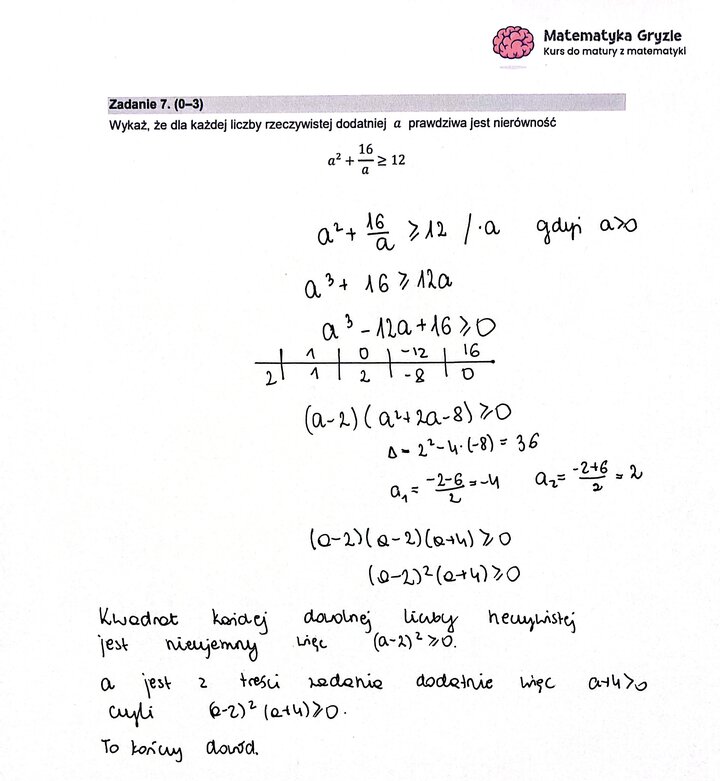 Matematyka Gryzie
Kurs do matury z matematyki
Zadanie 7. (0–3)
Wykaż, że dla każdej liczby rzeczywistej dodatniej a prawdziwa jest nierówność
a² + 16/a ≥ 12
a² + 16/a ≥ 12 / ·a gdyż a>0
a³ + 16 ≥ 12a
a³ - 12a + 16 ≥ 0
1 | 0 | -12 | 16
2 | 1 | 2 | -8 | 0
(a-2)(a²+2a-8) ≥ 0
Δ = 2² - 4·(-8) = 36
a₁ = (-2-6)/2 = -4 a₂ = (-2+6)/2 = 2
(a-2)(a-2)(a+4) ≥ 0
(a-2)²(a+4) ≥ 0
Kwadrat każdej dowolnej liczby rzeczywistej
jest nieujemny więc (a-2)² ≥ 0.
a jest z treści zadania dodatnie więc a+4>0
czyli (a-2)²(a+4) ≥ 0.
To kończy dowód.